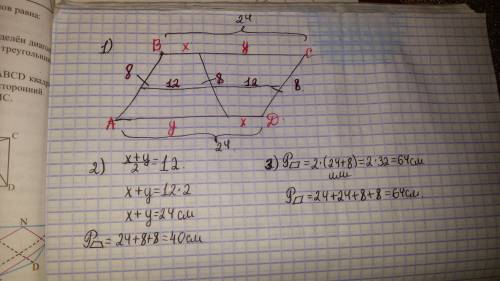 ов равна:
делён диагона
треугольны
ABCD квадр
сторонний.
C
D
N
D
1)
24
B x y C
8 12 8 12 8
A y x D
24
2) x+y/2 = 12
x+y=12·2
x+y=24см
P=24+8+8=40см
3) P=2·(24+8)=2·32=64см
или
P=24+24+8+8=64см.